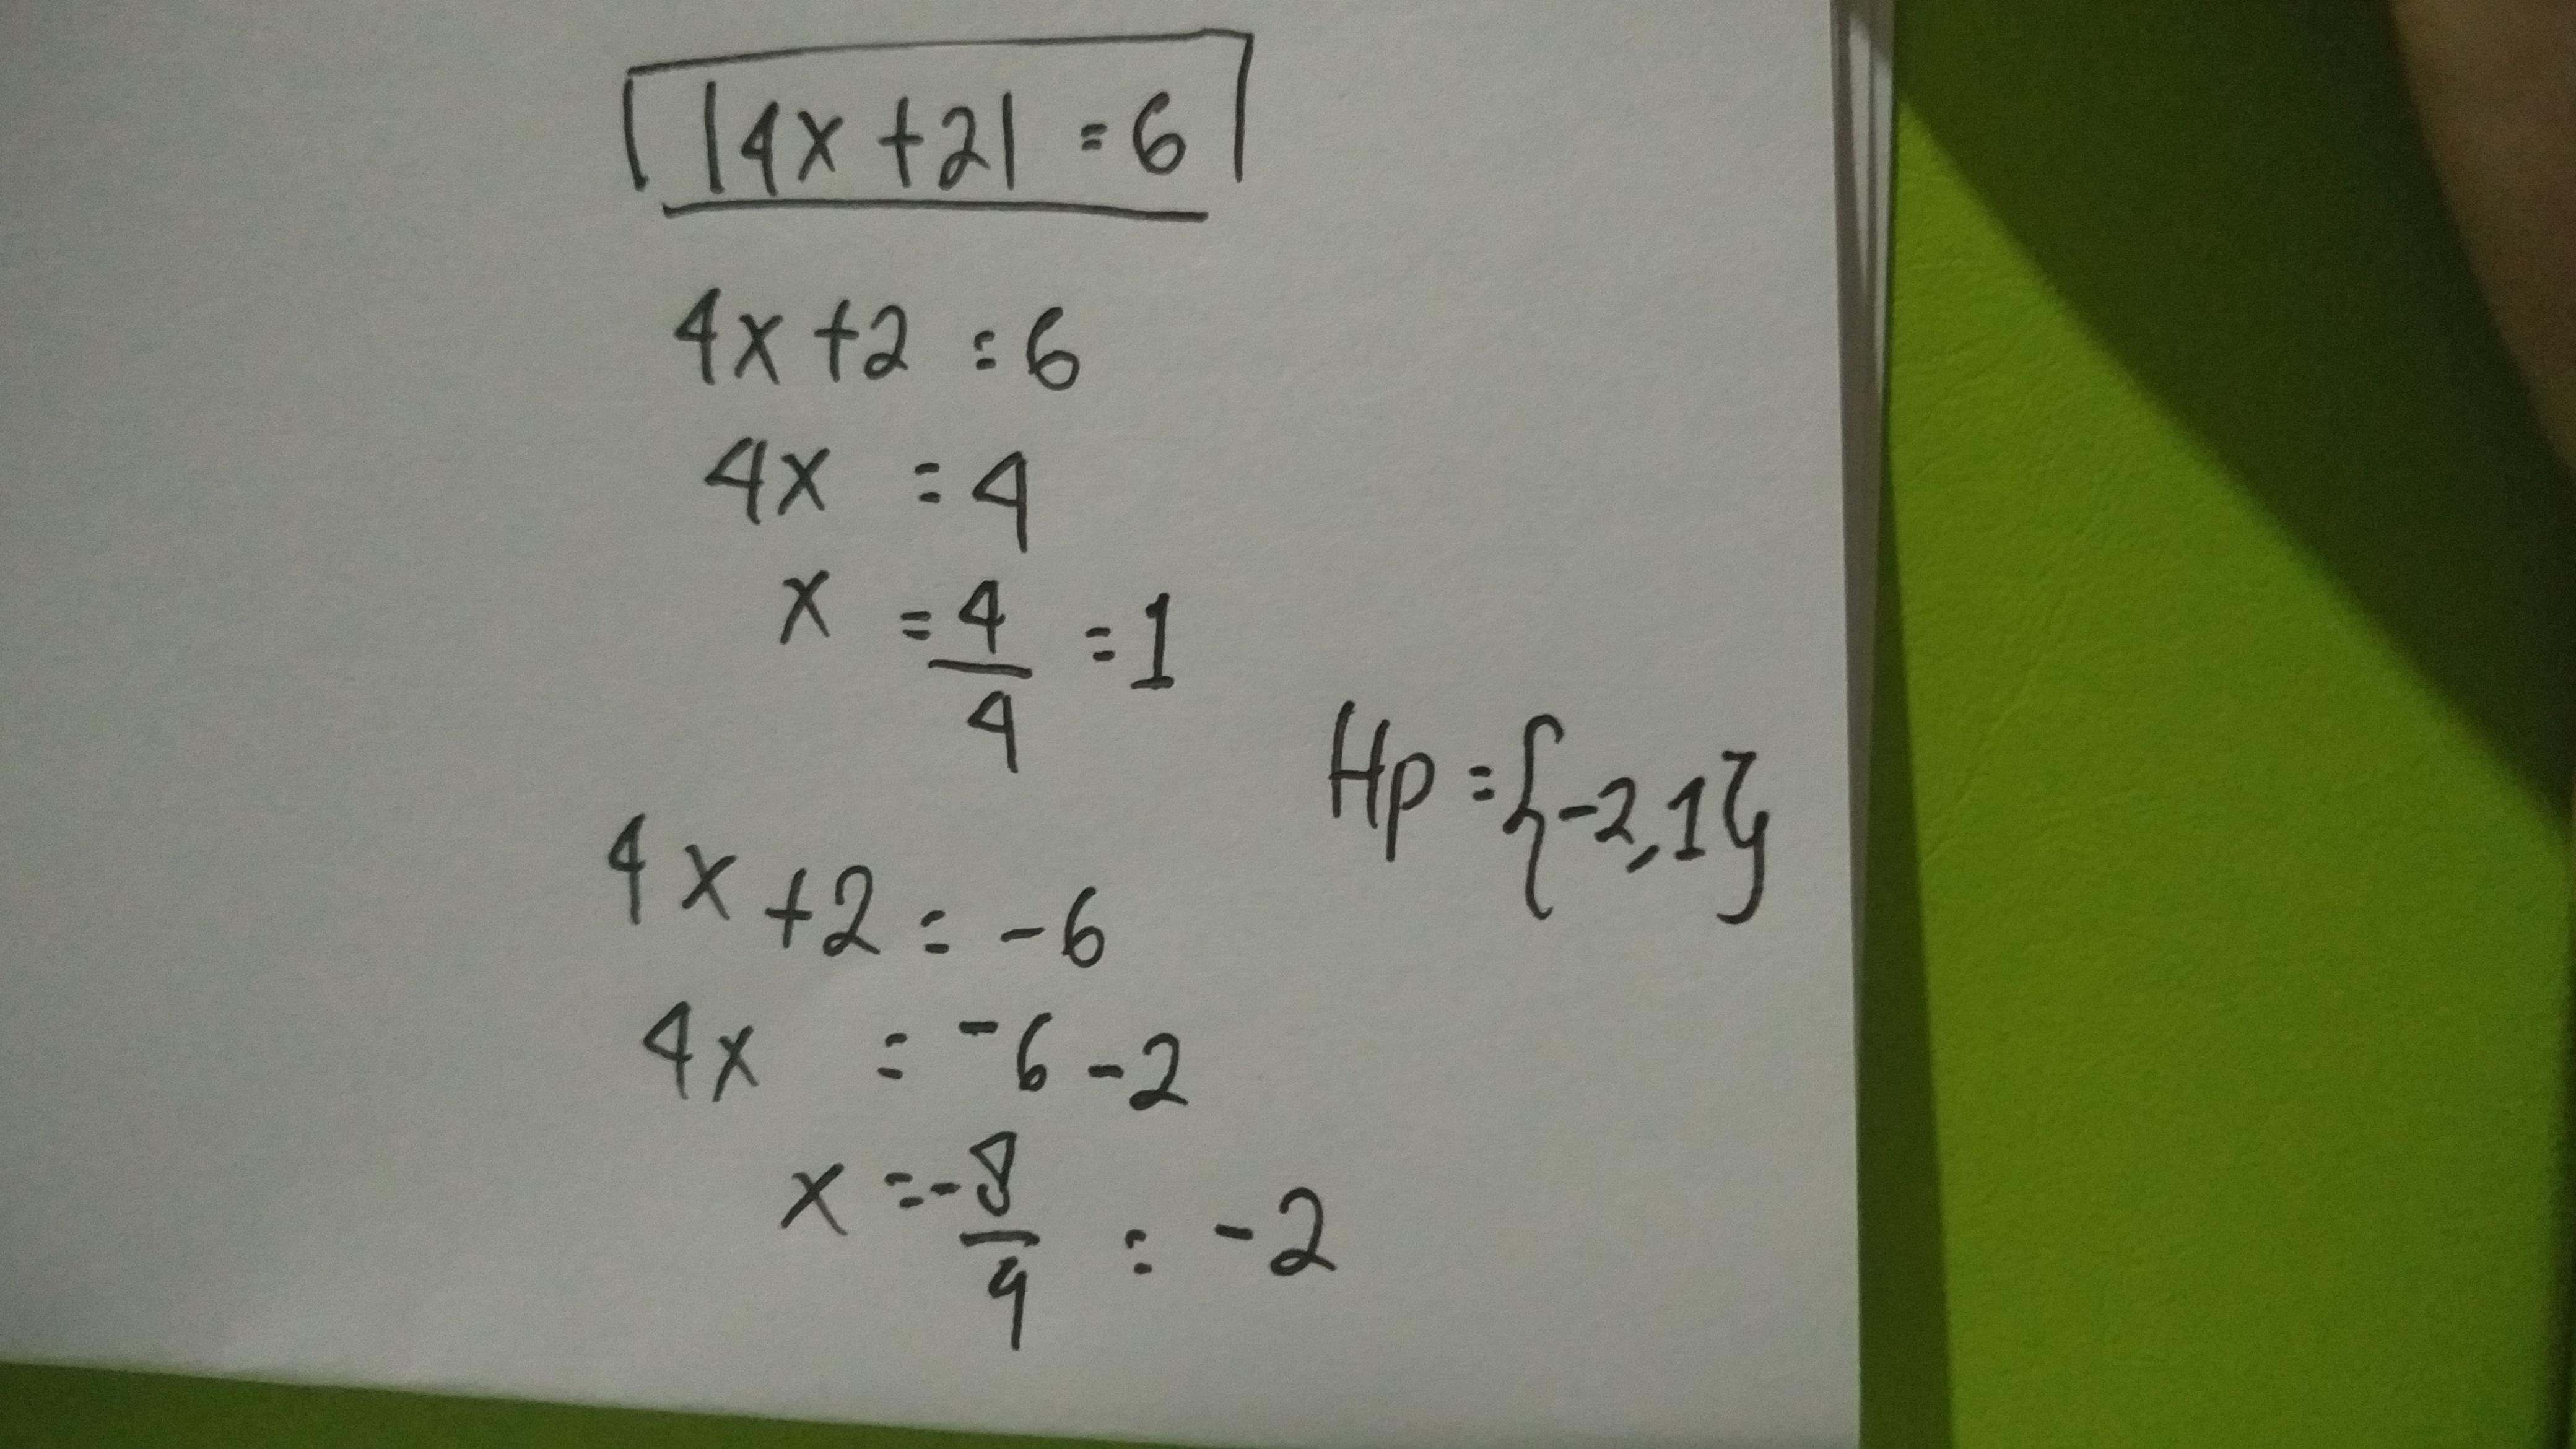 |4x + 2| = 6
4x + 2 = 6
4x = 4
x = 4/4 = 1
Hp = {-2, 1}
4x + 2 = -6
4x = -6 - 2
x = -8/4 = -2